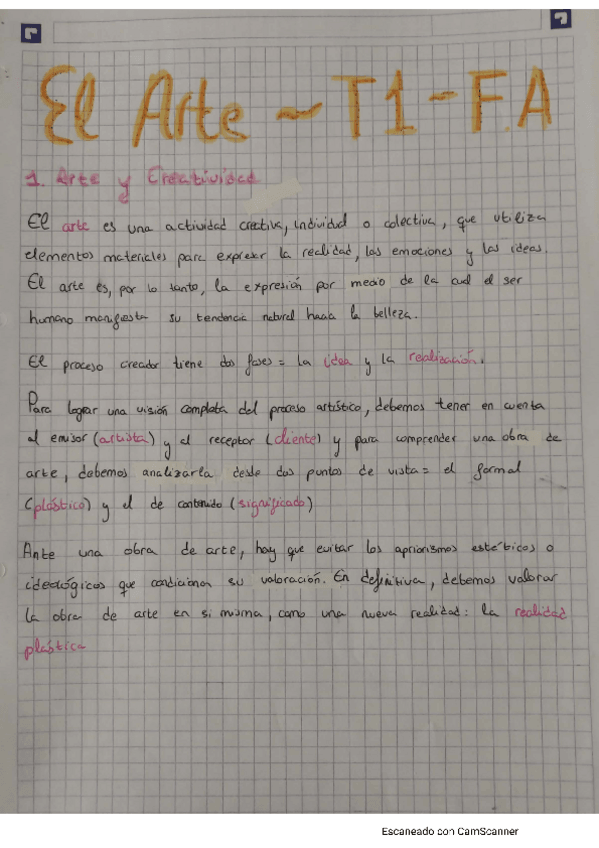 El Arte ~ T1 - F.A
1. Arte y Creatividad
El arte es una actividad creativa, individual o colectiva, que utiliza
elementos materiales para expresar la realidad, las emociones y las ideas.
El arte es, por lo tanto, la expresión por medio de la cual el ser
humano manifiesta su tendencia natural hacia la belleza.
El proceso creador tiene dos fases = la idea y la realización.
Para lograr una visión completa del proceso artístico, debemos tener en cuenta
al emisor (artista) y al receptor (cliente) y para comprender una obra de
arte, debemos analizarla desde dos puntos de vista = el formal
(plástico) y el de contenido (significado)
Ante una obra de arte, hay que evitar los apriorismos estéticos o
ideológicos que condicionan su valoración. En definitiva, debemos valorar
la obra de arte en si misma, como una nueva realidad: la realidad
plástica
Escaneado con CamScanner